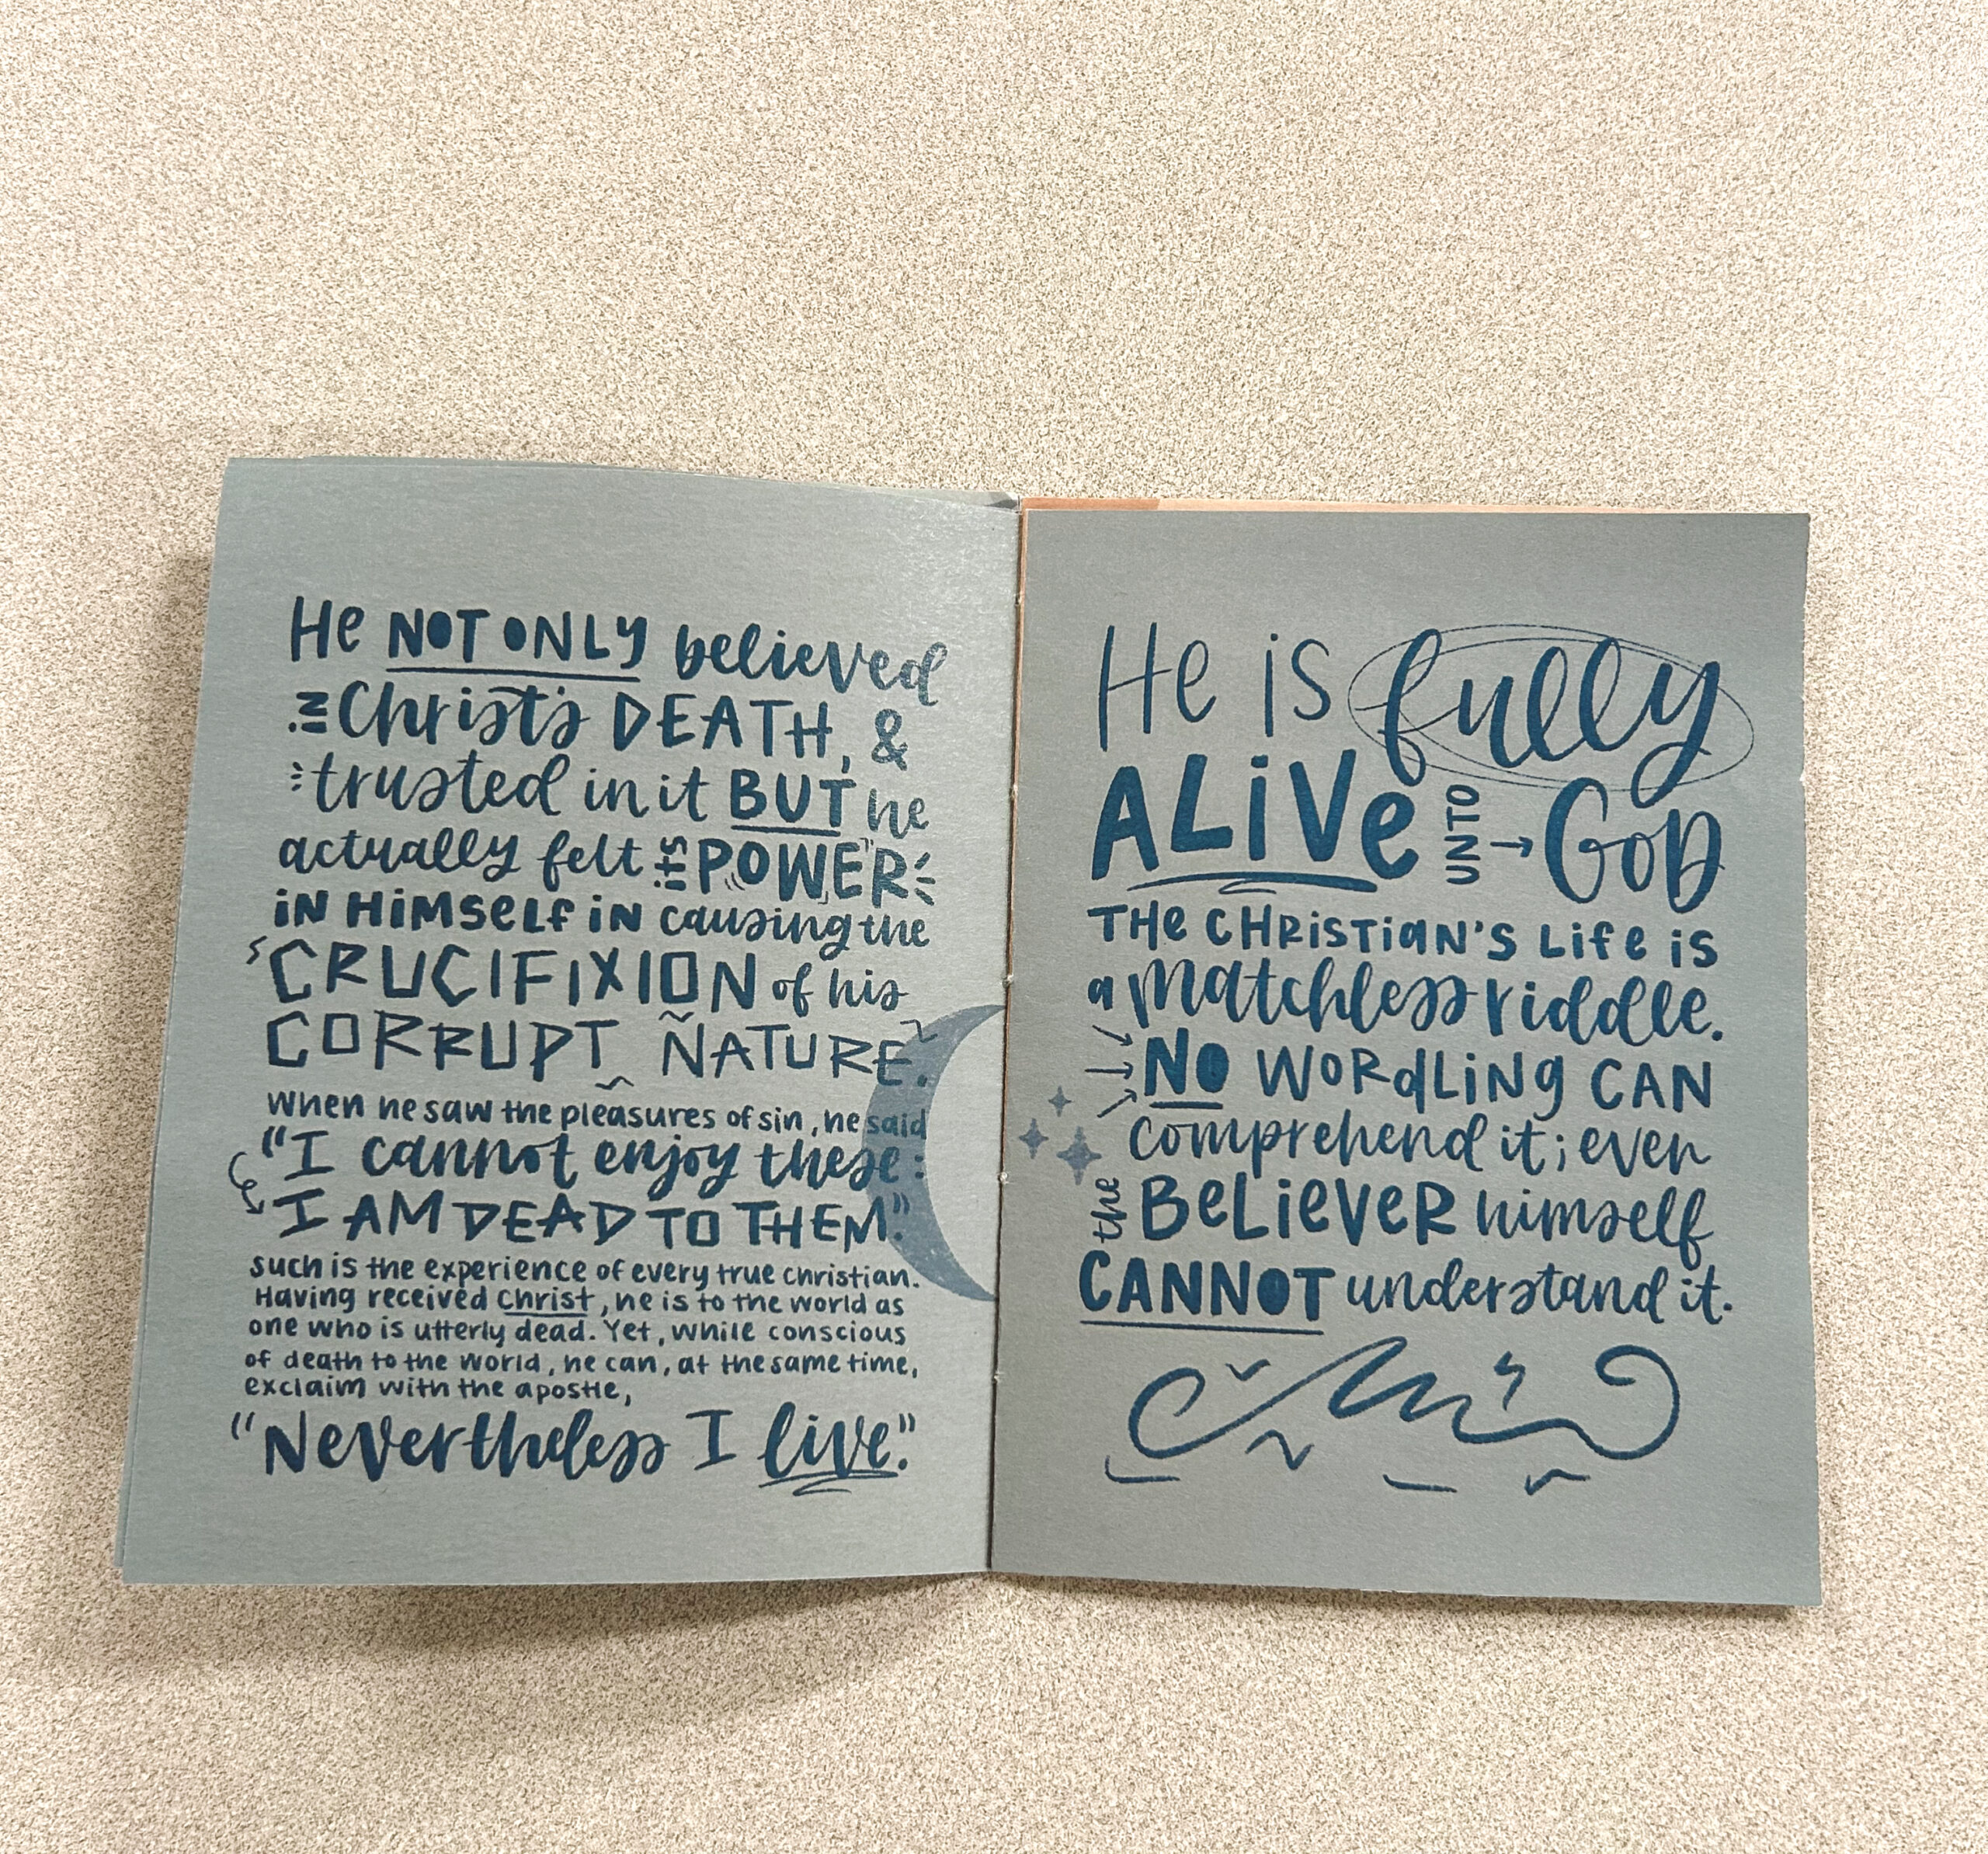 He NOT ONLY believed
IN Christ's DEATH, &
trusted in it BUT he
actually felt its POWER
IN HIMSELF IN causing the
CRUCIFIXION of his
CORRUPT NATURE.
When he saw the pleasures of sin, he said
"I cannot enjoy these:
I AM DEAD TO THEM."
such is the experience of every true christian.
Having received Christ, he is to the world as
one who is utterly dead. Yet, while conscious
of death to the world, he can, at the same time,
exclaim with the apostle,
"Nevertheless I live."
He is fully
ALIVE UNTO GOD
THE CHRISTIAN'S LIFE IS
a matchless riddle.
NO WORDLING CAN
comprehend it; even
the BELIEVER himself
CANNOT understand it.